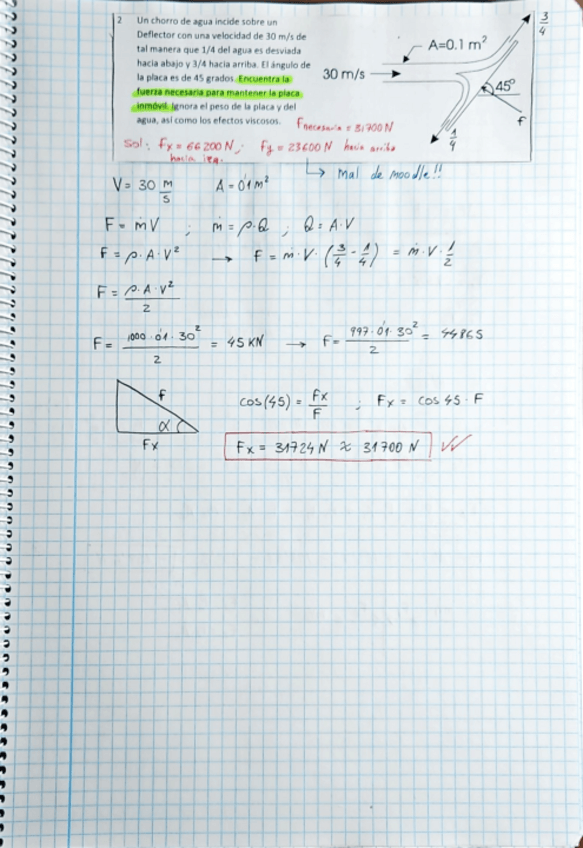 2 Un chorro de agua incide sobre un
Deflector con una velocidad de 30 m/s de
tal manera que 1/4 del agua es desviada
hacia abajo y 3/4 hacia arriba. El ángulo de
la placa es de 45 grados. Encuentra la
fuerza necesaria para mantener la placa
inmóvil. Ignora el peso de la placa y del
agua, así como los efectos viscosos.
A=0.1 m²
30 m/s
45°
3/4
1/4
F
Fnecesaria = 31700N
Sol: Fx = 66200N; Fy = 23600N hacia arriba
hacia izq.
Mal de moodle!!
V = 30 m/s A = 0'1 m²
F = ṁV ; ṁ = ρ·Q ; Q = A·V
F = ρ·A·V² → F = ṁ·V·(3/4 - 1/4) = ṁ·V·1/2
F = ρ·A·V²/2
F = 1000·0'1·30²/2 = 45KN → F = 997·0'1·30²/2 = 44865
F
α
Fx
cos(45) = Fx/F ; Fx = cos 45·F
Fx = 31724N ≈ 31700 N